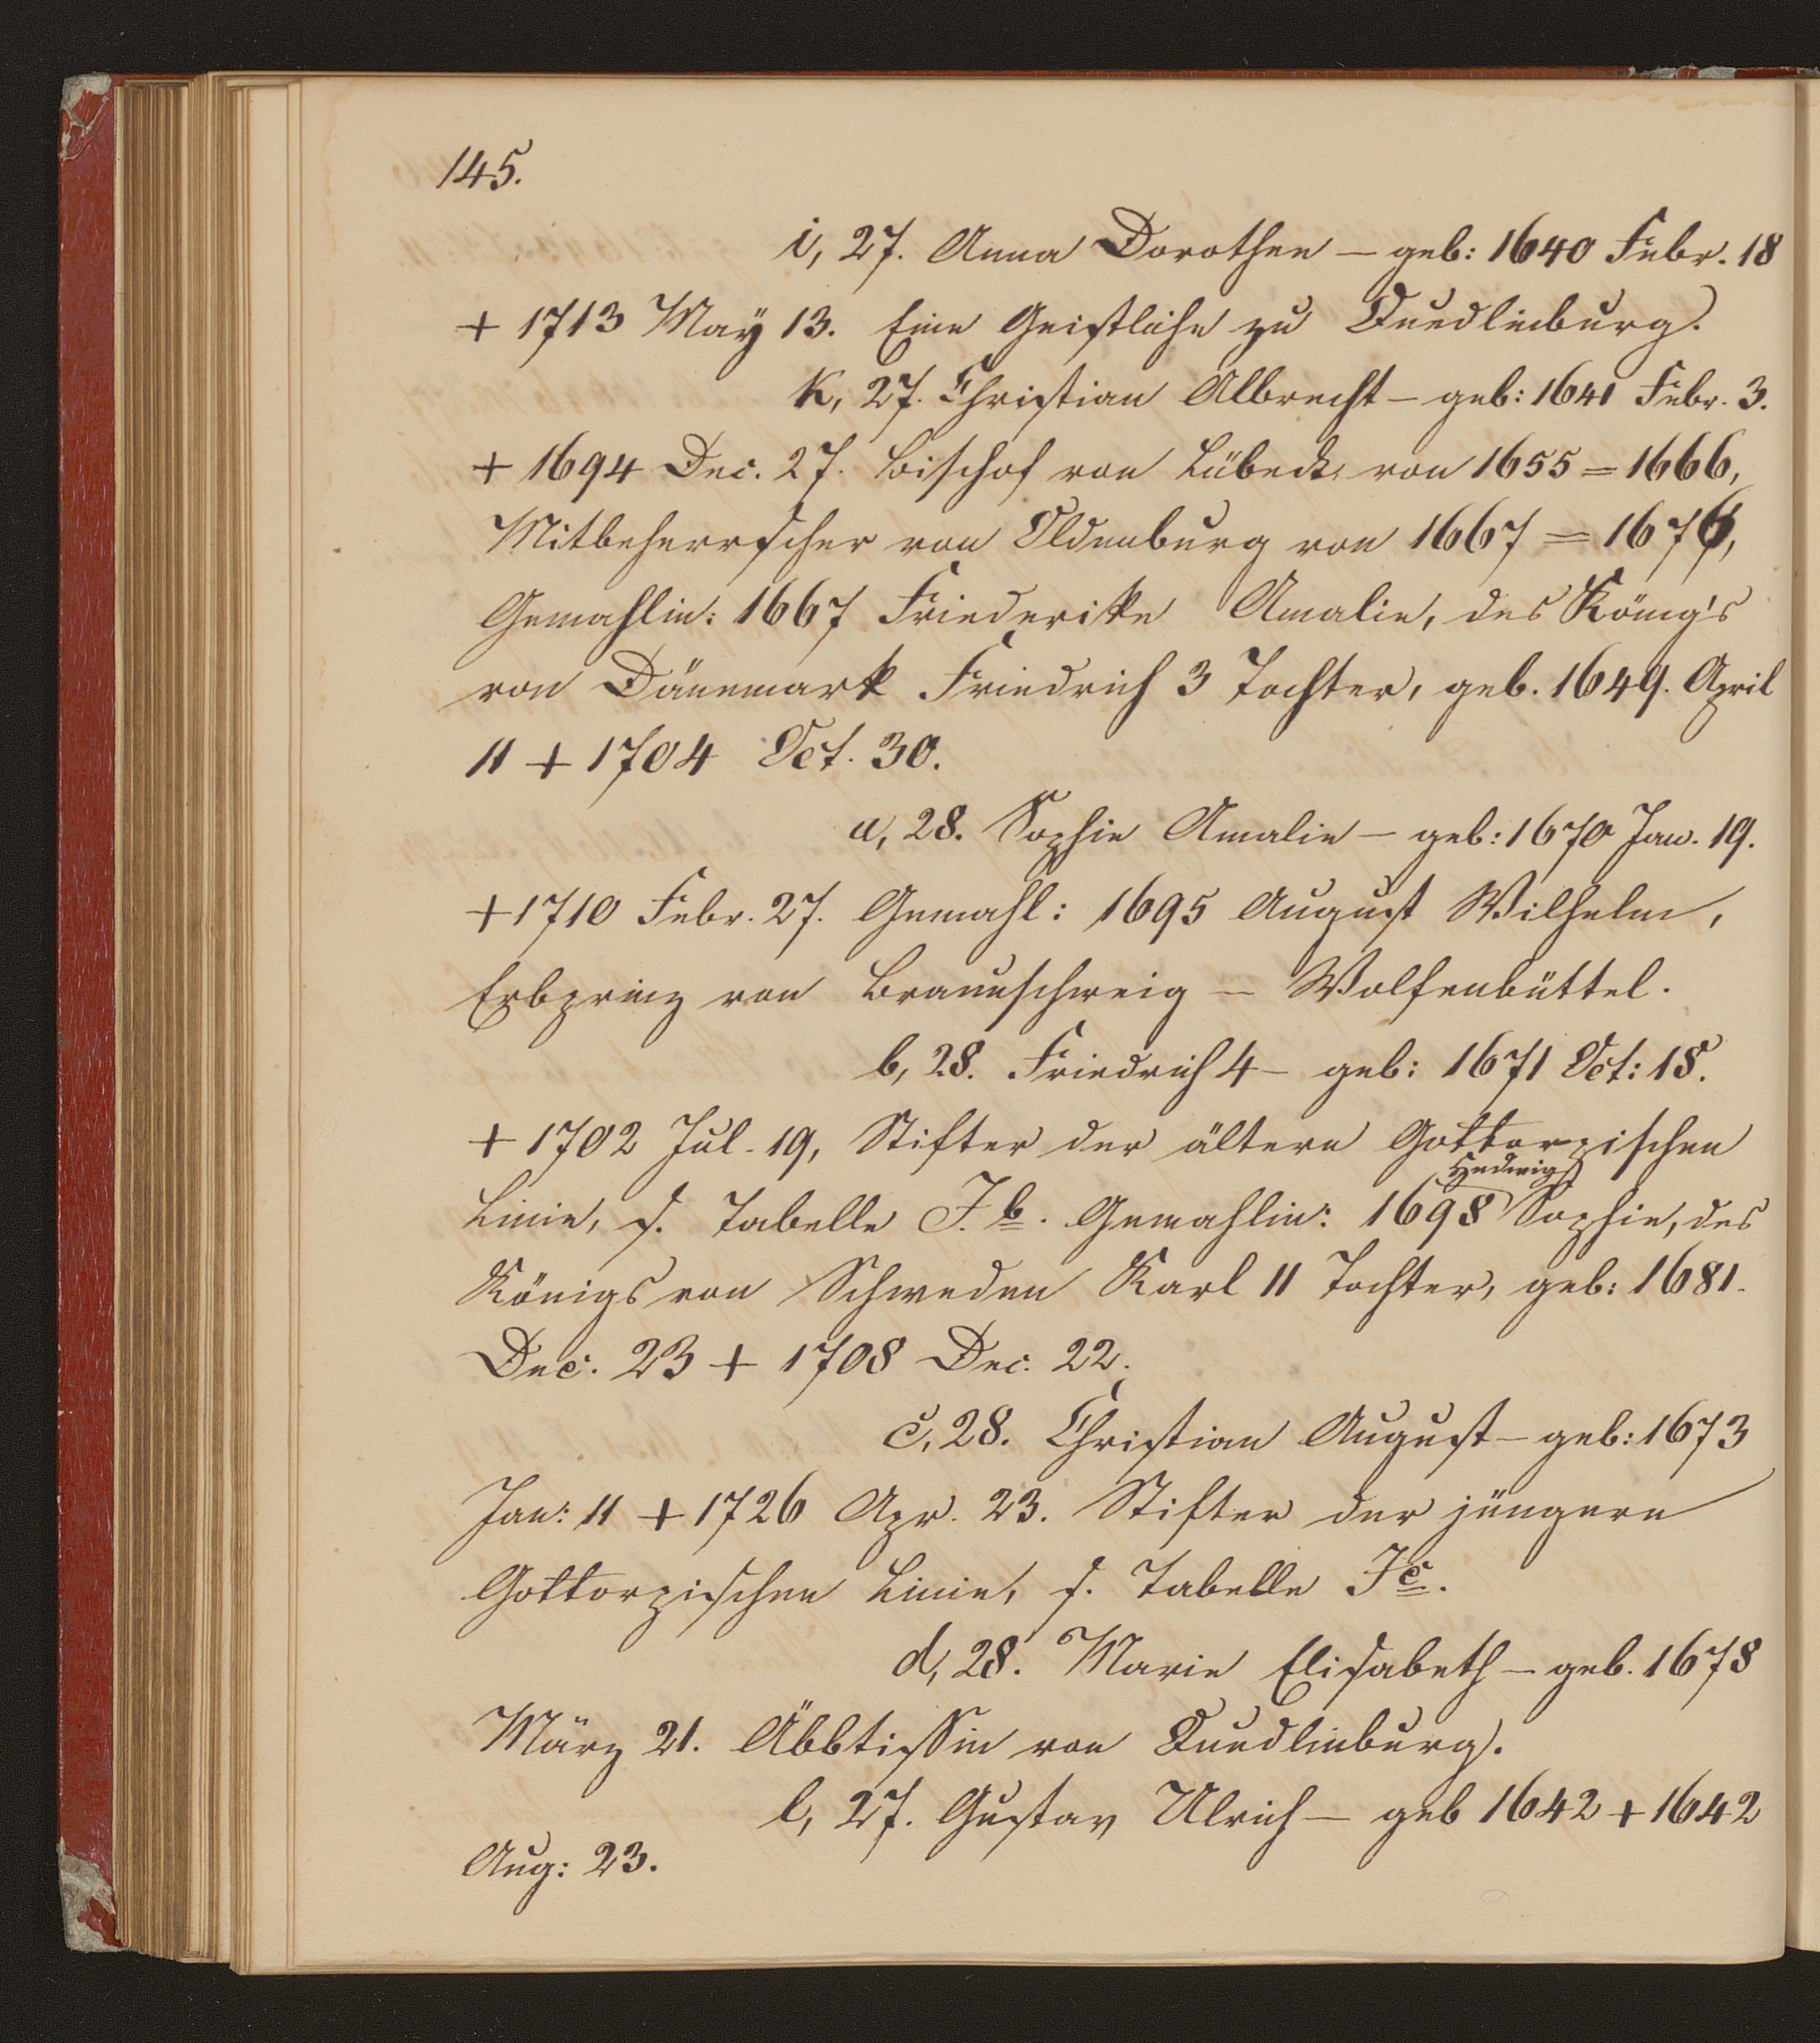 145.
i, 27. Anna Dorothea — geb: 1640 Febr. 18
+ 1713 May 13. Eine Geistliche zu Quedlinburg.
K, 27. Christian Albrecht — geb: 1641 Febr. 3.
+ 1694 Dec. 27. Bischof von Lübeck von 1655 = 1666,
Mitbeherrscher von Oldenburg von 1667 = 1676,
Gemahlin: 1667 Friederike Amalie, des König's
von Dänemark Friedrich 3 Tochter, geb. 1649. April
11 + 1704 Oct. 30.
a, 28. Sophie Amalie — geb: 1670 Jan. 19.
+ 1710 Febr. 27. Gemahl: 1695 August Wilhelm,
Erbprinz von Braunschweig — Wolfenbüttel.
b, 28. Friedrich 4 — geb: 1671 Oct: 18.
+ 1702 Jul. 19, Stifter der ältern Gottorpischen
Hedwig
Linie, s. Tabelle J. b. Gemahlin: 1698 Sophie, des
Königs von Schweden Karl 11 Tochter, geb: 1681.
Dec. 23 + 1708 Dec. 22.
c, 28. Christian August — geb: 1673
Jan: 11 + 1726 Apr. 23. Stifter der jüngern
Gottorpischen Linie, s. Tabelle J c.
d, 28. Marie Elisabeth — geb. 1678
März 21. Äbbtissin von Quedlinburg.
l, 27. Gustav Ulrich — geb 1642 + 1642
Aug: 23.